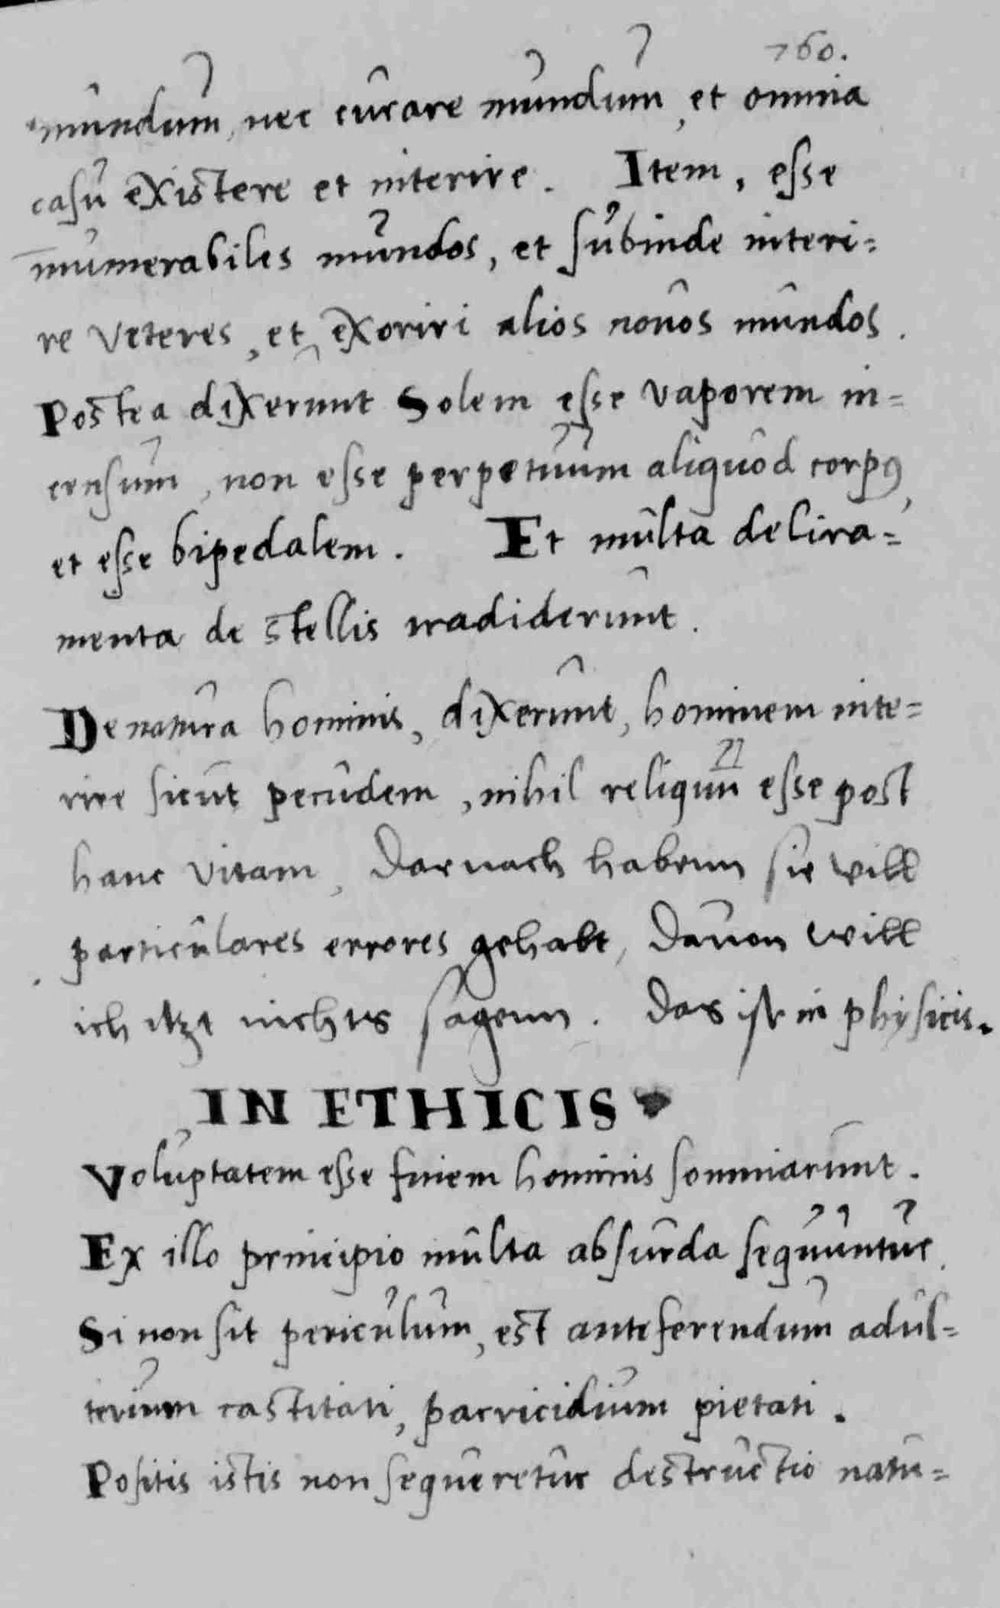 760.
mundum, nec curare mundum, et omnia
casu existere et interire. Item, esse
innumerabiles mundos, et subinde interi=
re veteres, et exoriri alios nouos mundos.
Postea dixerunt Solem esse vaporem in=
censum, non esse perpetuum aliquod corpꝰ,
et esse bipedalem. Et multa delira=
menta de stellis tradiderunt.
De natura hominis, dixerunt, hominem inte=
rire sicut pecudem, nihil reliquū esse post
hanc vitam, Darnach habenn sie vill
particulares errores gehabt, Dauon will
ich itzt nichts sagenn. Das ist in physicis.
IN ETHICIS
Voluptatem esse finem hominis somniarunt.
Ex illo principio multa absurda sequuntur.
Si non sit periculum, est anteferendum adul=
terium castitati, parricidium pietati.
Positis istis non sequeretur destructio natu=